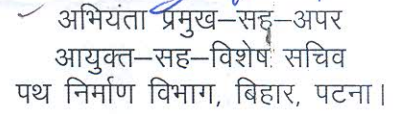 अभियंता प्रमुख–सह–अपर
आयुक्त–सह–विशेष सचिव
पथ निर्माण विभाग, बिहार, पटना।